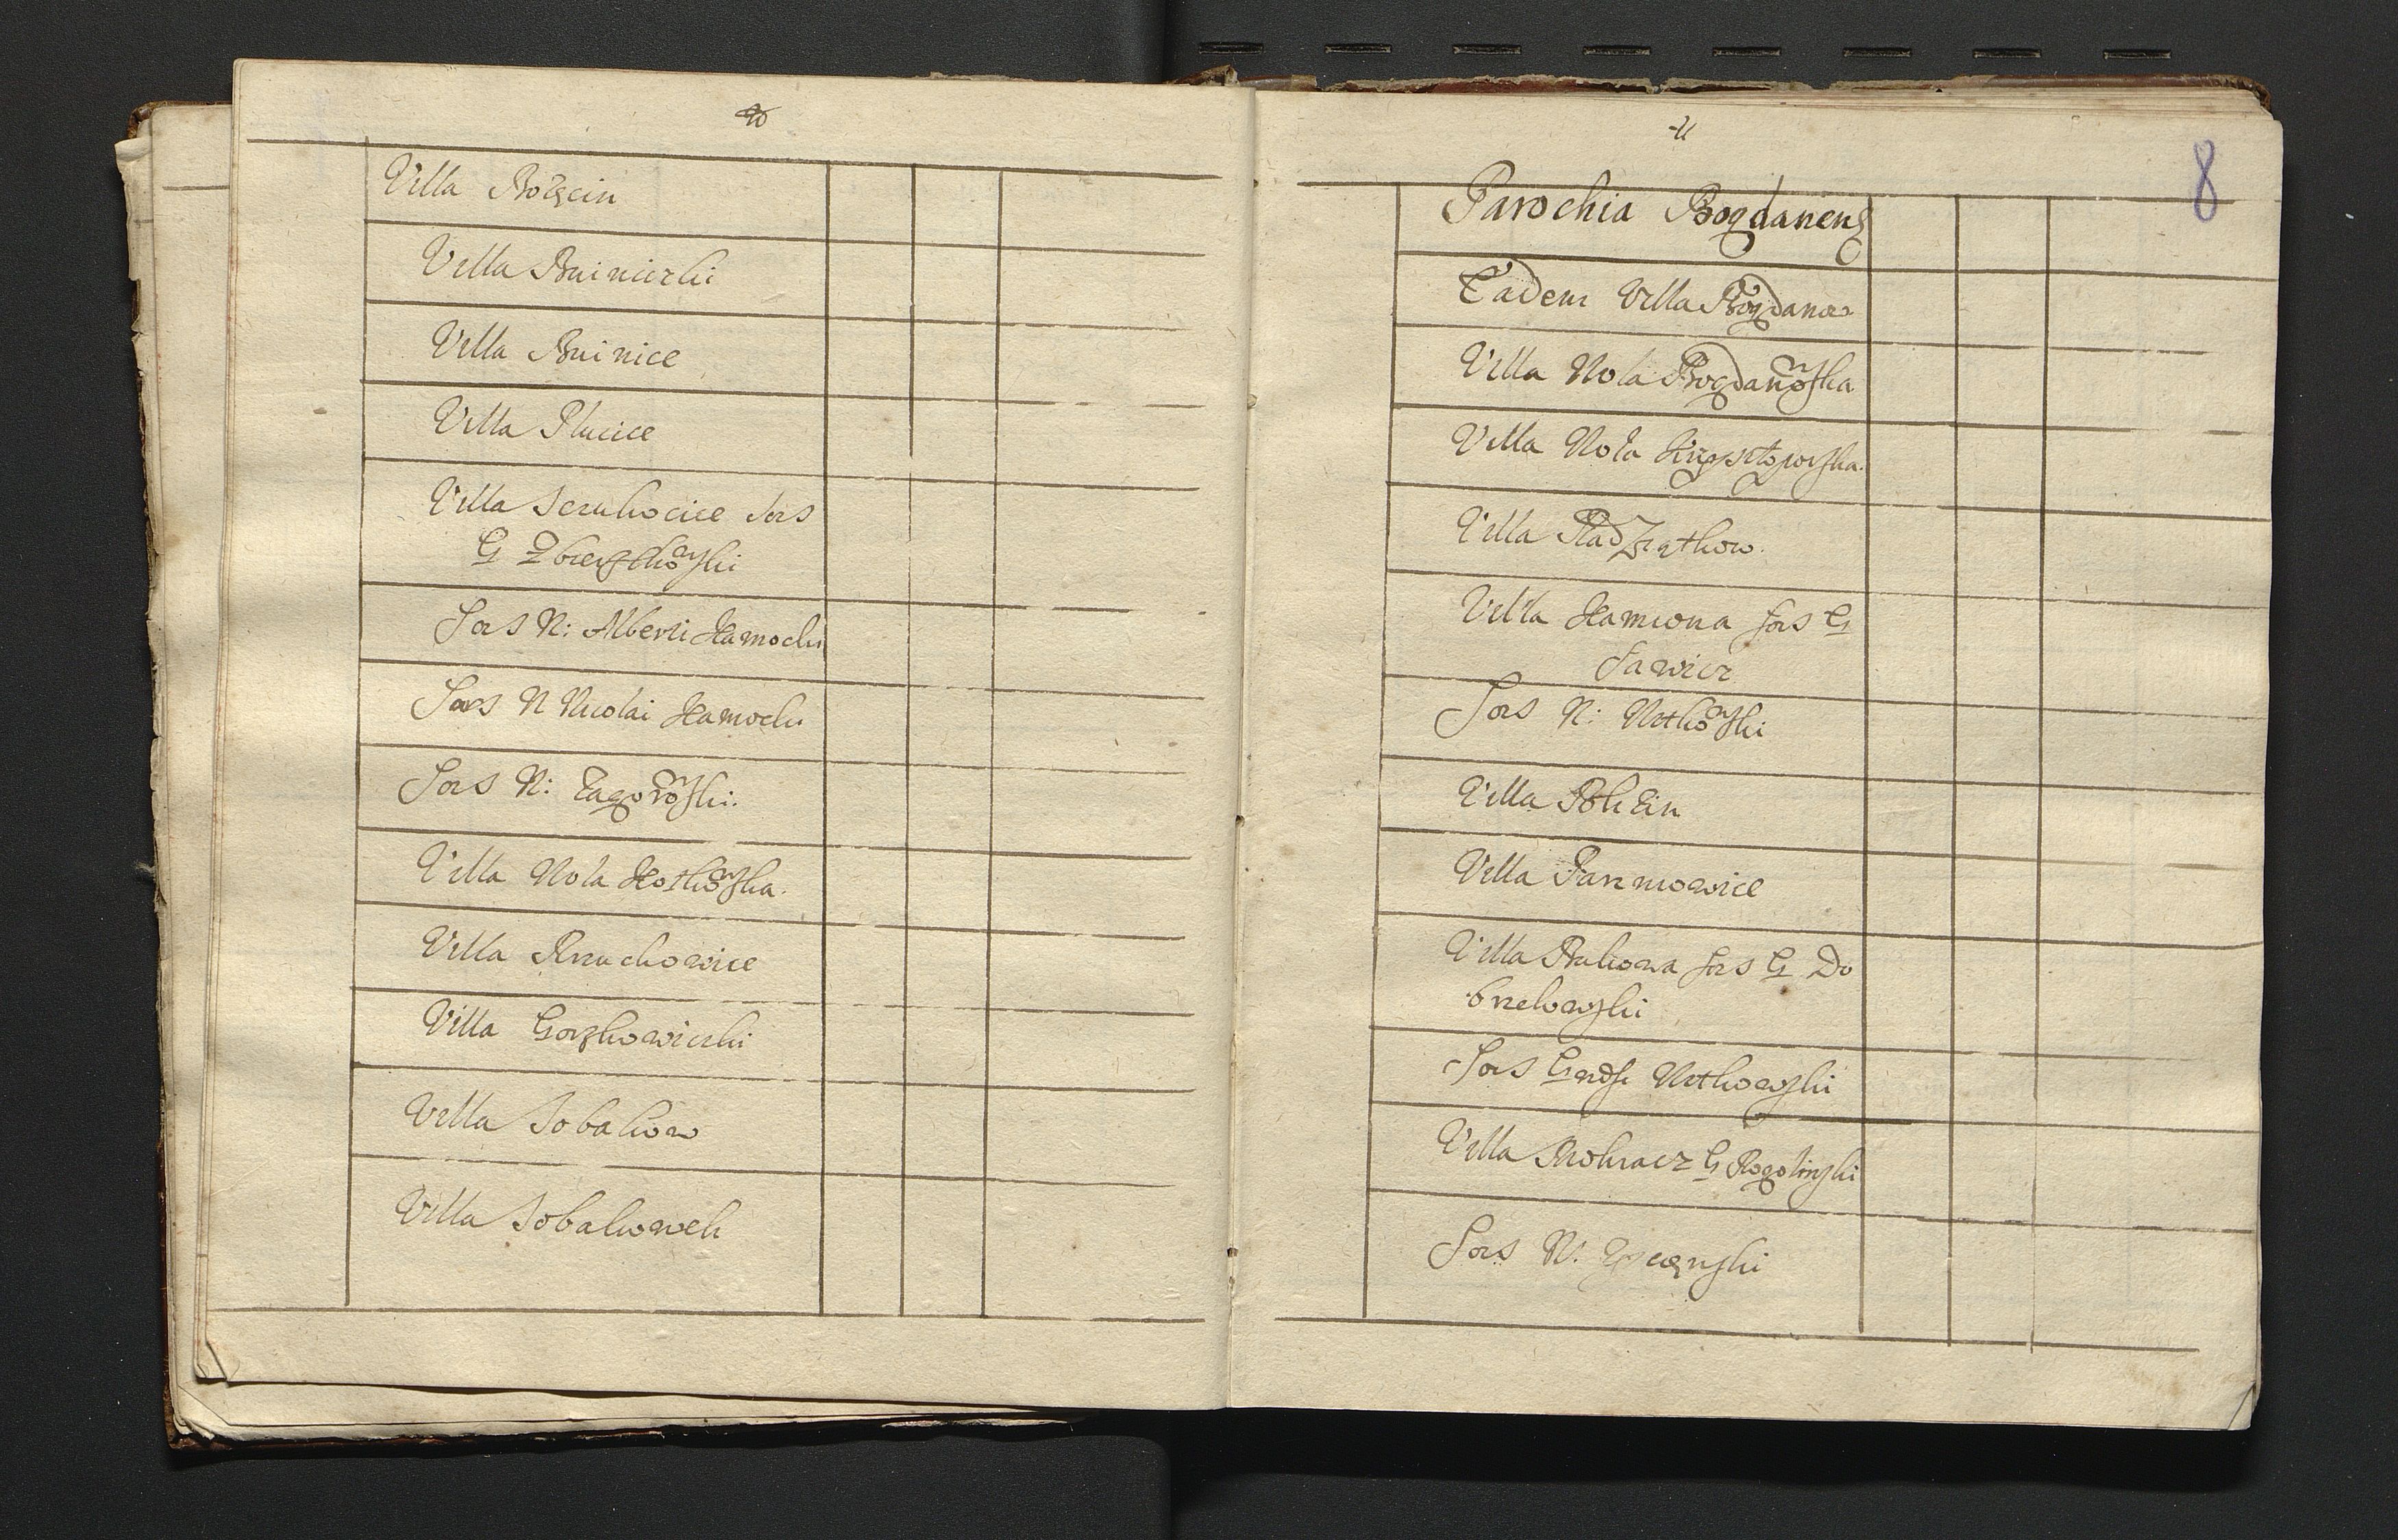 Villa Bożęcin
Villa Buiniczki
Villa Buinice
Villa Plucice
Villa Szczukocice sors
G Zbierzchowski
Sors N: Alberti Kamocki
Sors N Nicolai Kamocki
Sors N: Zagorowski.
Villa Wola Kotkowska.
Villa Krzuchowice
Villa Gorzkowiczki
Villa Sobakow
Villa Sobakowek
11
8
Parochia Bogdanens
Eadem Villa Bogdanow
Villa Wola Bogdanowska
Villa Wola Krzysztoporska.
Villa Radziątkow.
Villa Kamiona sors G
Sawicz
Sors N: Witkowski
Villa Bleżin
Villa Parzniowice
Villa Bukowa sors G Do
brzelowski
Sors Gndsi Witkowski
Villa Mokracz G Rogolinski
Sors N: